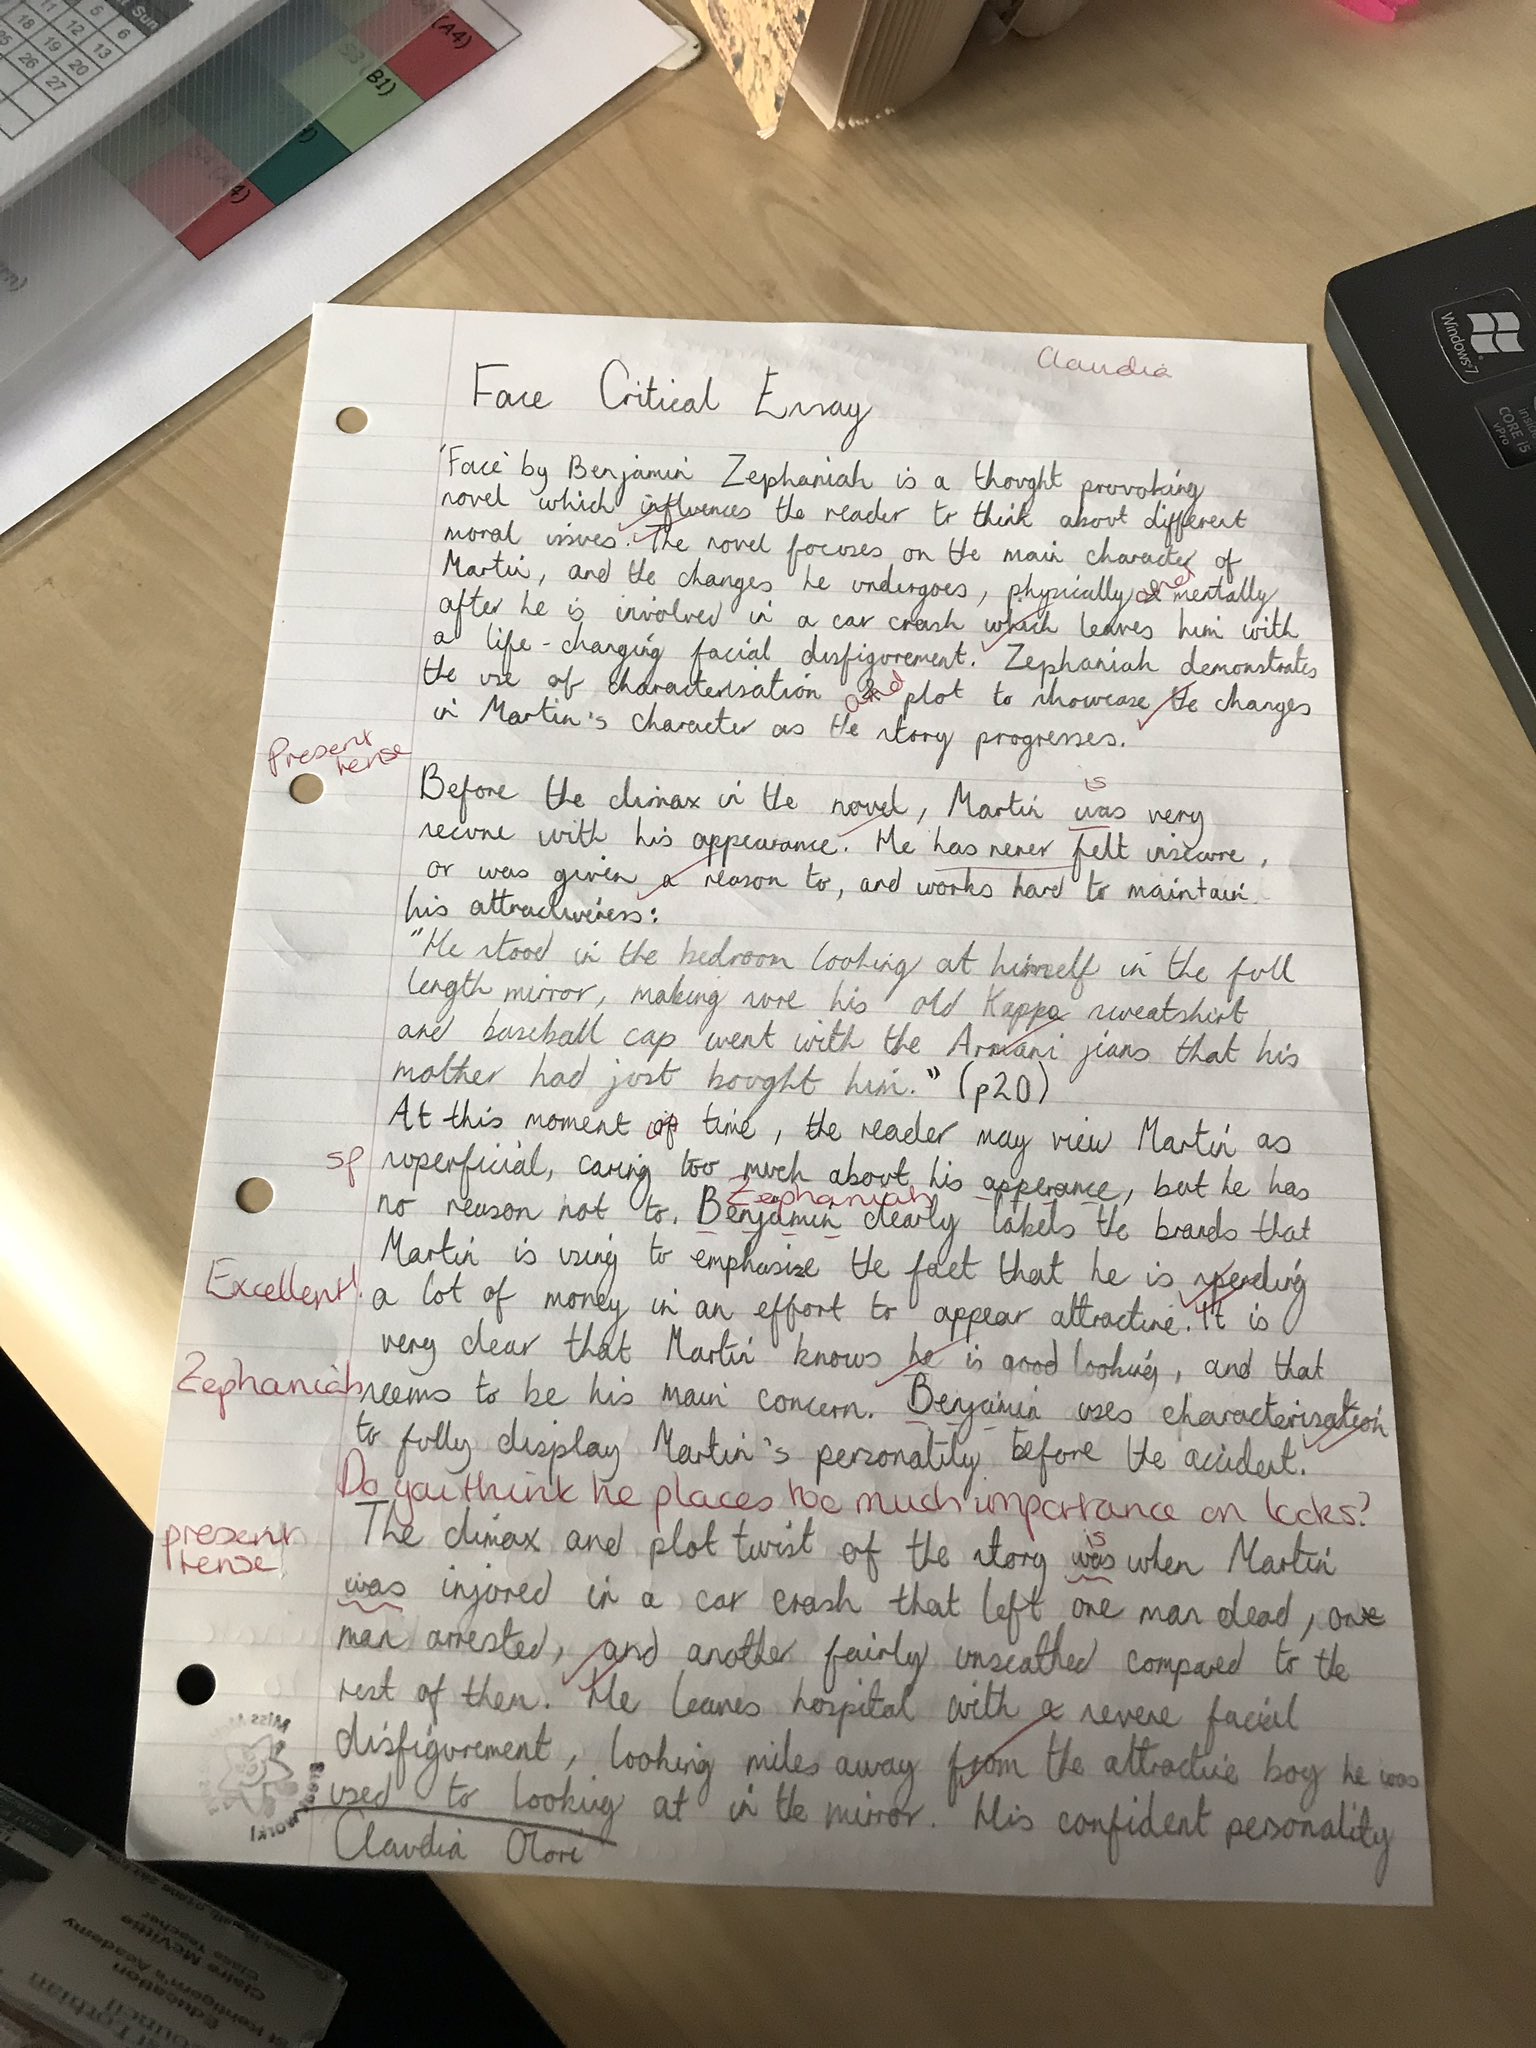 Sun
5
6
11
12
13
18
19
20
25
26
27
(A4)
(B1)
S4 (A4)
Windows 7
CORE i5
vPro
Claudia
Face Critical Essay
'Face' by Benjamin Zephaniah is a thought provoking
novel which influences the reader to think about different
moral issues. The novel focuses on the main character of
Martin, and the changes he undergoes, physically and mentally
after he is involved in a car crash which leaves him with
a life-changing facial disfigurement. Zephaniah demonstrates
the use of characterisation & and plot to showcase the changes
in Martin's character as the story progresses.
Present
tense
is
Before the climax in the novel, Martin was very
secure with his appearance. He has never felt insecure,
or was given a reason to, and works hard to maintain
his attractiveness:
"He stood in the bedroom looking at himself in the full
length mirror, making sure his old Kappa sweatshirt
and baseball cap went with the Armani jeans that his
mother had just bought him." (p20)
At this moment of time, the reader may view Martin as
sp superficial, caring too much about his apperance, but he has
Zephaniah
no reason not to. Benjamin clearly labels the brands that
Martin is using to emphasize the fact that he is spending
Excellent! a lot of money in an effort to appear attractive. It is
very clear that Martin knows he is good looking, and that
Zephaniah seems to be his main concern. Benjamin uses characterisation
to fully display Martin's personality before the accident.
Do you think he places too much importance on looks?
present
tense
is
The climax and plot twist of the story was when Martin
was injured in a car crash that left one man dead, one
man arrested, and another fairly unscathed compared to the
rest of them. He leaves hospital with a severe facial
disfigurement, looking miles away from the attractive boy he was
used to looking at in the mirror. His confident personality
Claudia Olori
Claire McVittie
Class Teacher
St Kentigern's Academy
Education